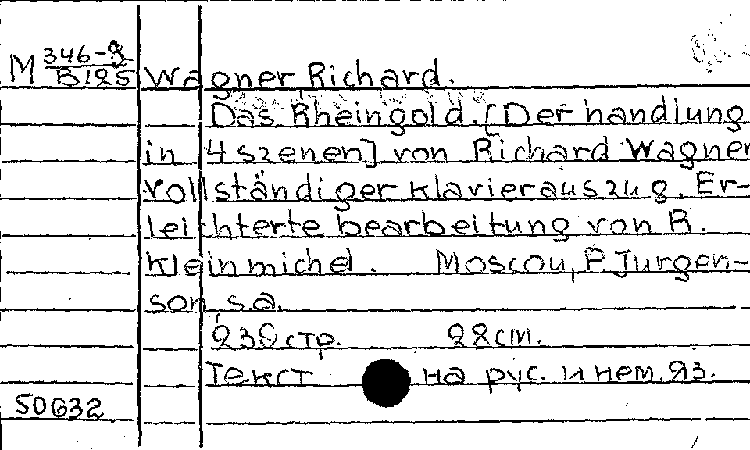 M 346-9
B125 Wagner Richard.
Das Rheingold. [Der handlung
in 4 szenen] von Richard Wagner
Vollständiger klavierauszug. Er-
leichterte bearbeitung von R.
Kleinmichel. Moscou, P. Jurgen-
son, s.a.
239 стр. 28 cm.
Текст на рус. и нем. яз.
50632